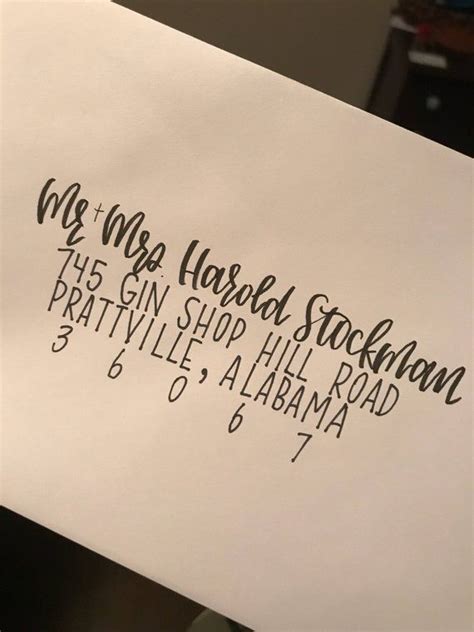 Mr + Mrs. Harold Stockman
745 GIN SHOP HILL ROAD
PRATTVILLE, ALABAMA
3 6 0 6 7